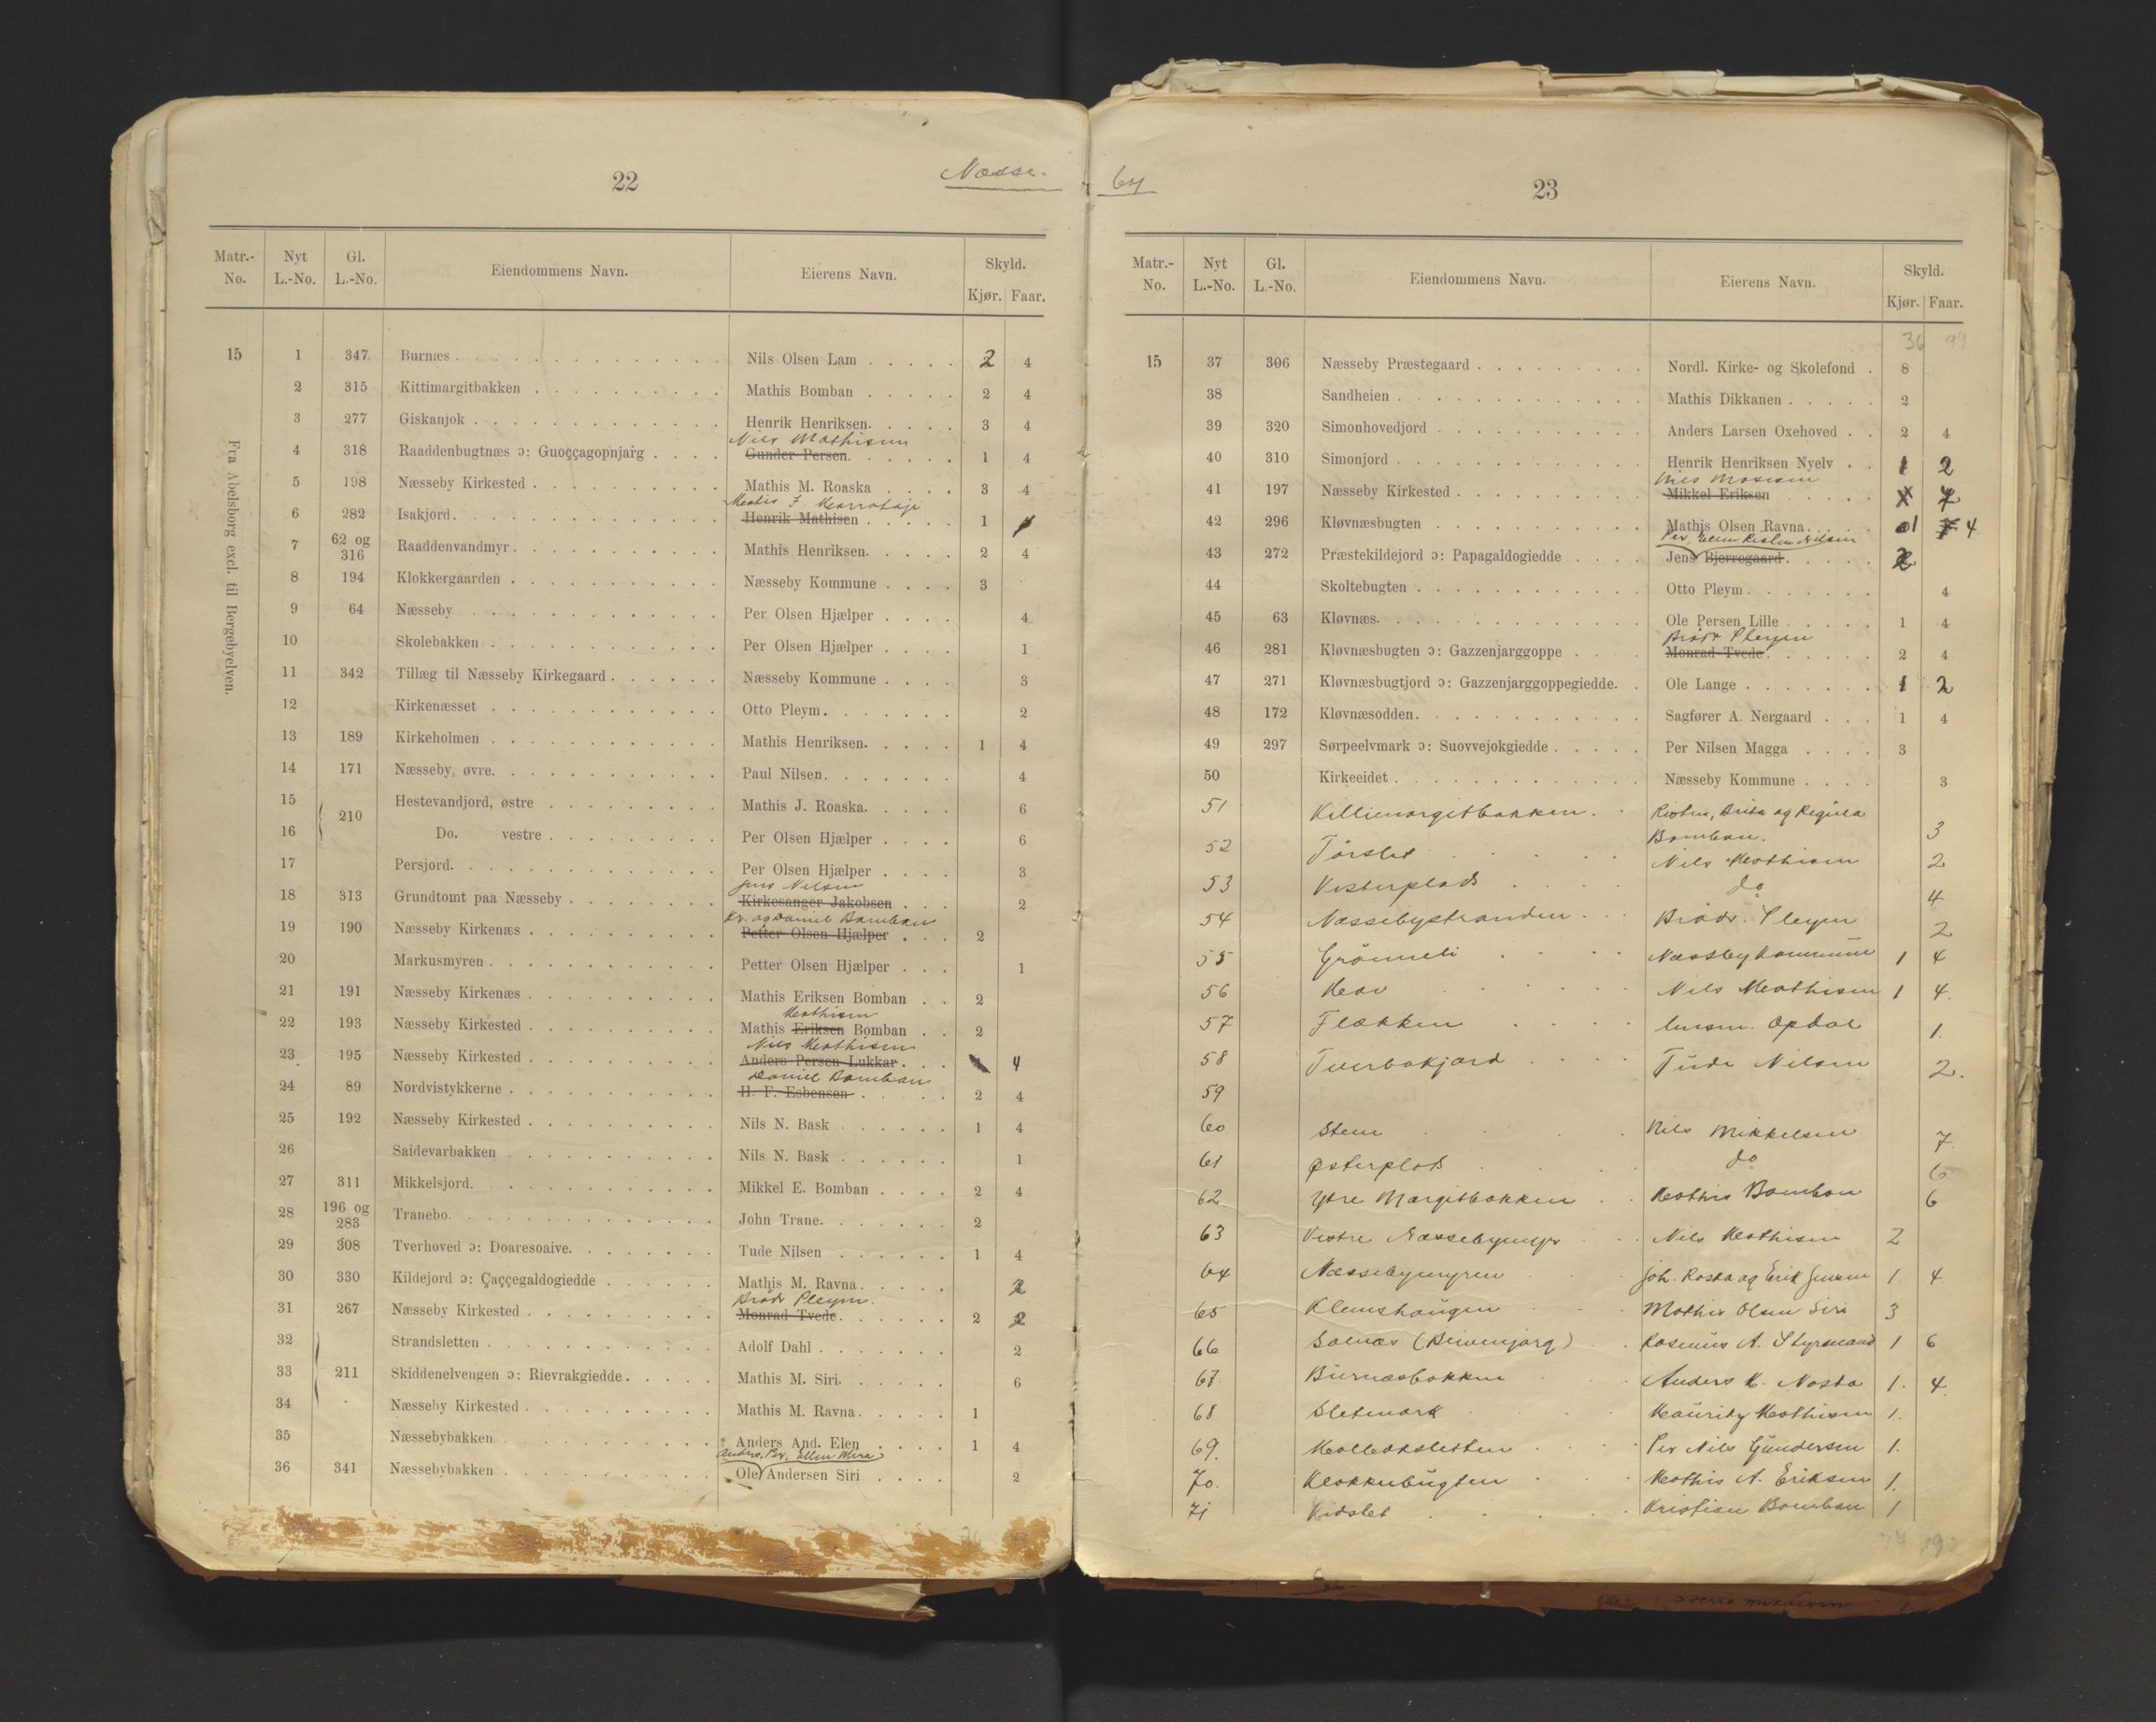 22
Næsse-
Matr.-No. Nyt L.-No. Gl. L.-No. Eiendommens Navn. Eierens Navn. Skyld. Kjør. Faar.
Fra Abelsborg excl. til Bergebyelven.
15 1 347 Burnæs Nils Olsen Lam 2 4
2 315 Kittimargitbakken Mathis Bomban 2 4
3 277 Giskanjok Henrik Henriksen. 3 4
Nils Mathisen
4 318 Raaddenbugtnæs ɔ: Guoççagopnjarg Gunder Persen. 1 4
5 198 Næsseby Kirkested Mathis M. Roaska 3 4
6 282 Isakjord. Henrik Mathisen 1
7 62 og 316 Raaddenvandmyr. Mathis Henriksen. 2 4
8 194 Klokkergaarden Næsseby Kommune 3
9 64 Næsseby Per Olsen Hjælper 4
10 Skolebakken Per Olsen Hjælper 1
11 342 Tillæg til Næsseby Kirkegaard Næsseby Kommune 3
12 Kirkenæsset Otto Pleym. 2
13 189 Kirkeholmen Mathis Henriksen. 1 4
14 171 Næsseby, øvre. Paul Nilsen. 4
15 210 Hestevandjord, østre Mathis J. Roaska. 6
16 Do. vestre Per Olsen Hjælper 6
17 Persjord. Per Olsen Hjælper 3
Jens Nilsen
18 313 Grundtomt paa Næsseby Kirkesanger Jakobsen 2
Kr. og Daniel Bomban
19 190 Næsseby Kirkenæs Petter Olsen Hjælper 2
20 Markusmyren Petter Olsen Hjælper 1
21 191 Næsseby Kirkenæs Mathis Eriksen Bomban 2
Mathisen
22 193 Næsseby Kirkested Mathis Eriksen Bomban 2
Nils Mathisen
23 195 Næsseby Kirkested Anders Persen Lukkar. 4
Daniel Bomban
24 89 Nordvistykkerne H. F. Esbensen 2 4
25 192 Næsseby Kirkested Nils N. Bask 1 4
26 Saidevarbakken Nils N. Bask 1
27 311 Mikkelsjord. Mikkel E. Bomban 2 4
28 196 og 283 Tranebo. John Trane. 2
29 308 Tverhoved ɔ: Doaresoaive. Tude Nilsen 1 4
30 330 Kildejord ɔ: Çaççegaldogiedde Mathis M. Ravna. 2
Brødr Pleym.
31 267 Næsseby Kirkested Monrad Tvede. 2 2
32 Strandsletten Adolf Dahl 2
33 211 Skiddenelvengen ɔ: Rievrakgiedde. Mathis M. Siri. 6
34 Næsseby Kirkested Mathis M. Ravna. 1
35 Næssebybakken Anders And. Elen 1 4
Anders, Per, Ellen
36 341 Næssebybakken Ole Andersen Siri 2
by
23
Matr.-No. Nyt L.-No. Gl. L.-No. Eiendommens Navn. Eierens Navn. Skyld. Kjør. Faar.
36 99
15 37 306 Næsseby Præstegaard Nordl. Kirke- og Skolefond 8
38 Sandheien Mathis Dikkanen 2
39 320 Simonhovedjord Anders Larsen Oxehoved 2 4
40 310 Simonjord Henrik Henriksen Nyelv 1 2
41 197 Næsseby Kirkested Mikkel Eriksen
42 296 Kløvnæsbugten Mathis Olsen Ravna. 1 4
43 272 Præstekildejord ɔ: Papagaldogiedde Jens Bjerregaard. 2
44 Skoltebugten Otto Pleym. 4
45 63 Kløvnæs. Ole Persen Lille 1 4
Brødr Pleym
46 281 Kløvnæsbugten ɔ: Gazzenjarggoppe Monrad Tvede. 2 4
47 271 Kløvnæsbugtjord ɔ: Gazzenjarggoppegiedde. Ole Lange 1 2
48 172 Kløvnæsodden. Sagfører A. Nergaard 1 4
49 297 Sørpeelvmark ɔ: Suovvejokgiedde Per Nilsen Magga 3
50 Kirkeeidet Næsseby Kommune 3
51 Kittimargitbakken. Kirsten, Brita og Regina
Bomban. 3
52 Tørslet Nils Mathisen 2
53 Vesterplads do 4
54 Næssebystranden Brødr. Pleym 2
55 Grønneli Næsseby Kommune 1 4
56 Nils Mathisen 1 4.
57 Flækken Lensm. Opdal 1.
58 Tverbakjord Tude Nilsen 2.
59
60 Sten Nils Mikkelsen 7.
61 Østerplads do 6
62 Ytre Margitbakken Mathis Bomban 6
63 Vestre Næssebymyr Nils Mathisen 2
64 Næssebymyren Joh. Roska og Erik Jensen 1 4.
65 Klemshaugen Mathis Olsen Siri 3
66 Solnæs (Beivenjarg) Rasmus A. Styrmand 1 6
67 Burnæsbakken Anders K. Nosta 1. 4.
68 Sletmark Mauritz Mathisen 1.
69. Per Nils Gundersen 1.
70. Klokkebugten Mathis A. Eriksen 1.
71 Vidslet Kristian Bomban 1